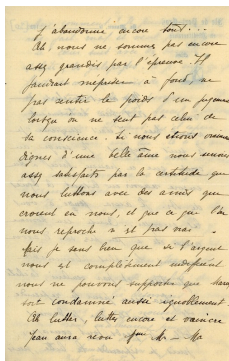 j'abandonne encore tout...
Ah nous ne sommes pas encore
assez grandis par l'épreuve. Il
faudrait mépriser à fond, ne
pas sentir le poids d'un jugement
lorsqu'on ne sent pas celui de
la conscience. Si nous étions vraiment
dignes d'une belle âme nous serions
assez satisfaits par la certitude que
nous luttons avec des amis qui
croient en nous, et que ce que l'on
nous reproche n'est pas vrai.
Mais je sais bien que si l'argent
nous est complètement indifférent
nous ne pouvons supporter que
soit condamné aussi
Ah lutter, lutter encore et vaincre
Jean aura